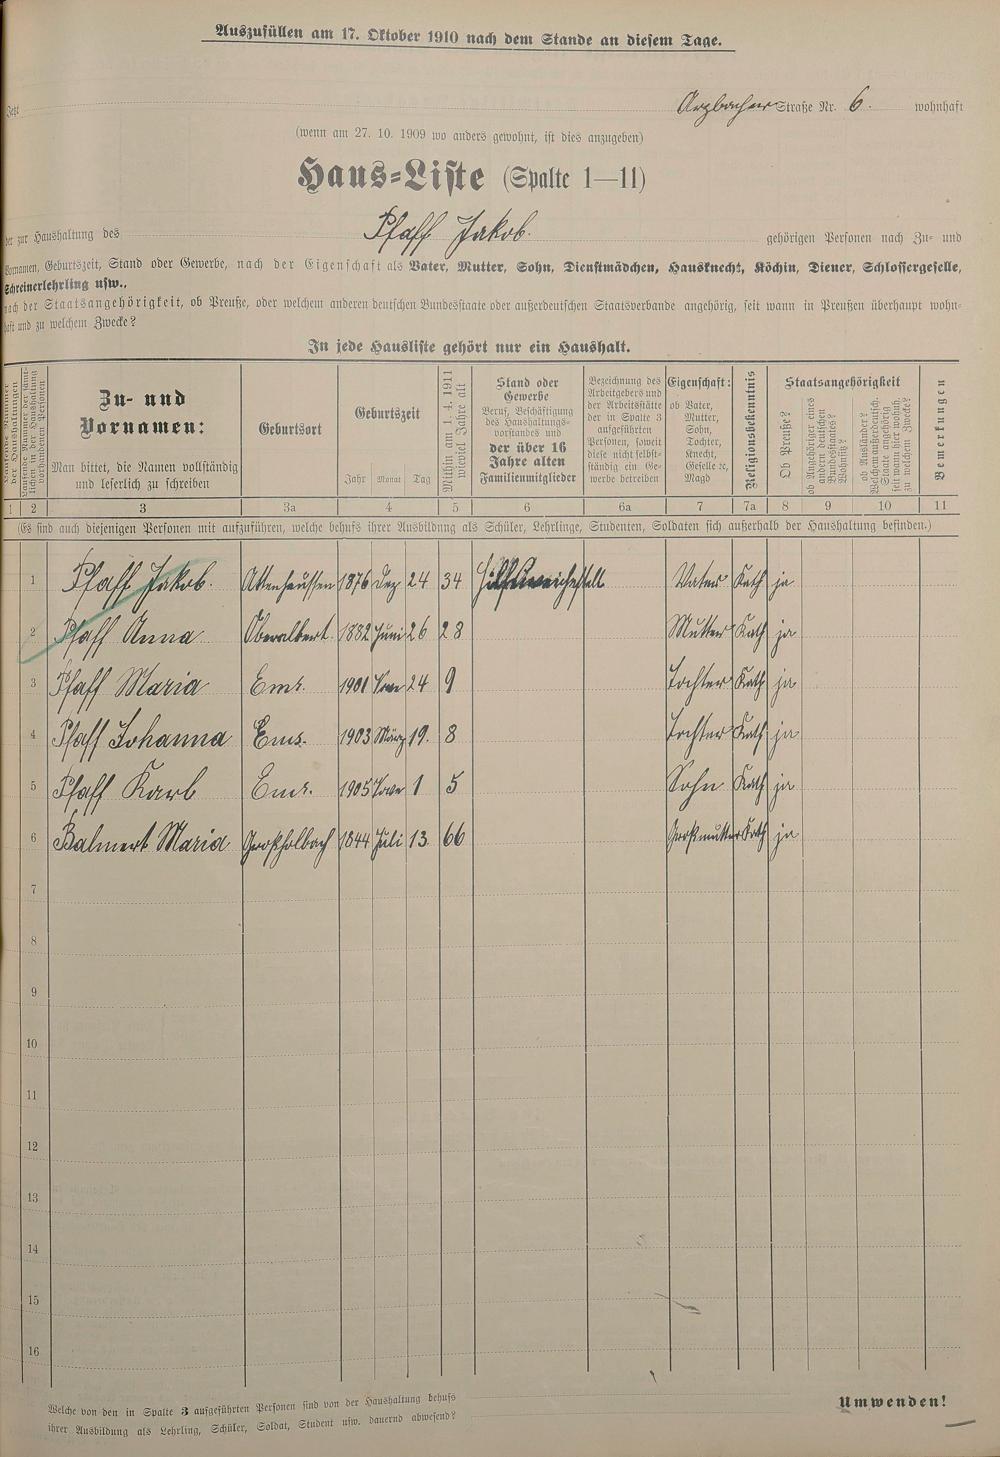 Auszufüllen am 17. Oktober 1910 nach dem Stande an diesem Tage.
Jetzt Arzbacher Straße Nr. 6. wohnhaft
(wenn am 27. 10. 1909 wo anders gewohnt, ist dies anzugeben)
Haus-Liste (Spalte 1—11)
der zur Haushaltung des Pfaff Jakob. gehörigen Personen nach Zu- und
Vornamen, Geburtszeit, Stand oder Gewerbe, nach der Eigenschaft als Vater, Mutter, Sohn, Dienstmädchen, Hausknecht, Köchin, Diener, Schlossergeselle,
Schreinerlehrling usw.,
nach der Staatsangehörigkeit, ob Preuße, oder welchem anderen deutschen Bundesstaate oder außerdeutschen Staatsverbande angehörig, seit wann in Preußen überhaupt wohn-
haft und zu welchem Zwecke?
In jede Hausliste gehört nur ein Haushalt.
Laufende Nummer der Haushaltungen
Laufende Nummer der sämt-
lichen in der Haushaltung
vorhandenen Personen
Zu- und
Vornamen:
Man bittet, die Namen vollständig
und leserlich zu schreiben
Geburtsort
Geburtszeit
Jahr Monat Tag
Mithin am 1. 4. 1911
wieviel Jahre alt
Stand oder
Gewerbe
Beruf, Beschäftigung
des Haushaltungs-
vorstandes und
der über 16
Jahre alten
Familienmitglieder
Bezeichnung des
Arbeitgebers und
der Arbeitsstätte
der in Spalte 3
aufgeführten
Personen, soweit
diese nicht selbst-
ständig ein Ge-
werbe betreiben
Eigenschaft:
ob Vater,
Mutter,
Sohn,
Tochter,
Knecht,
Geselle ꝛc,
Magd
Religionsbekenntnis
Staatsangehörigkeit
Ob Preuße?
ob Angehöriger eines
andern deutschen
Bundesstaates?
Wohnsitz?
ob Ausländer?
Welchem außerdeutsch.
Staate angehörig
seit wann hier wohnh.
zu welchem Zwecke?
Bemerkungen
1 2 3 3a 4 5 6 6a 7 7a 8 9 10 11
(Es sind auch diejenigen Personen mit aufzuführen, welche behufs ihrer Ausbildung als Schüler, Lehrlinge, Studenten, Soldaten sich außerhalb der Haushaltung befinden.)
1 Pfaff Jakob. 1876 Dez 24 34 Vater Kath ja
2 Pfaff Anna 1882 Juni 26 28 Mutter Kath ja
3 Pfaff Maria Ems. 1901 24 9 Tochter Kath ja
4 Pfaff Johanna Ems. 1903 März 19. 8 Tochter Kath ja
5 Pfaff Karl Ems. 1905 1 5 Sohn Kath ja
6 Balmert Maria Großholbach 1844 Juli 13 66 Großmutter Kath ja
7
8
9
10
11
12
13
14
15
16
Welche von den in Spalte 3 aufgeführten Personen sind von der Haushaltung behufs
ihrer Ausbildung als Lehrling, Schüler, Soldat, Student usw. dauernd abwesend?
Umwenden!